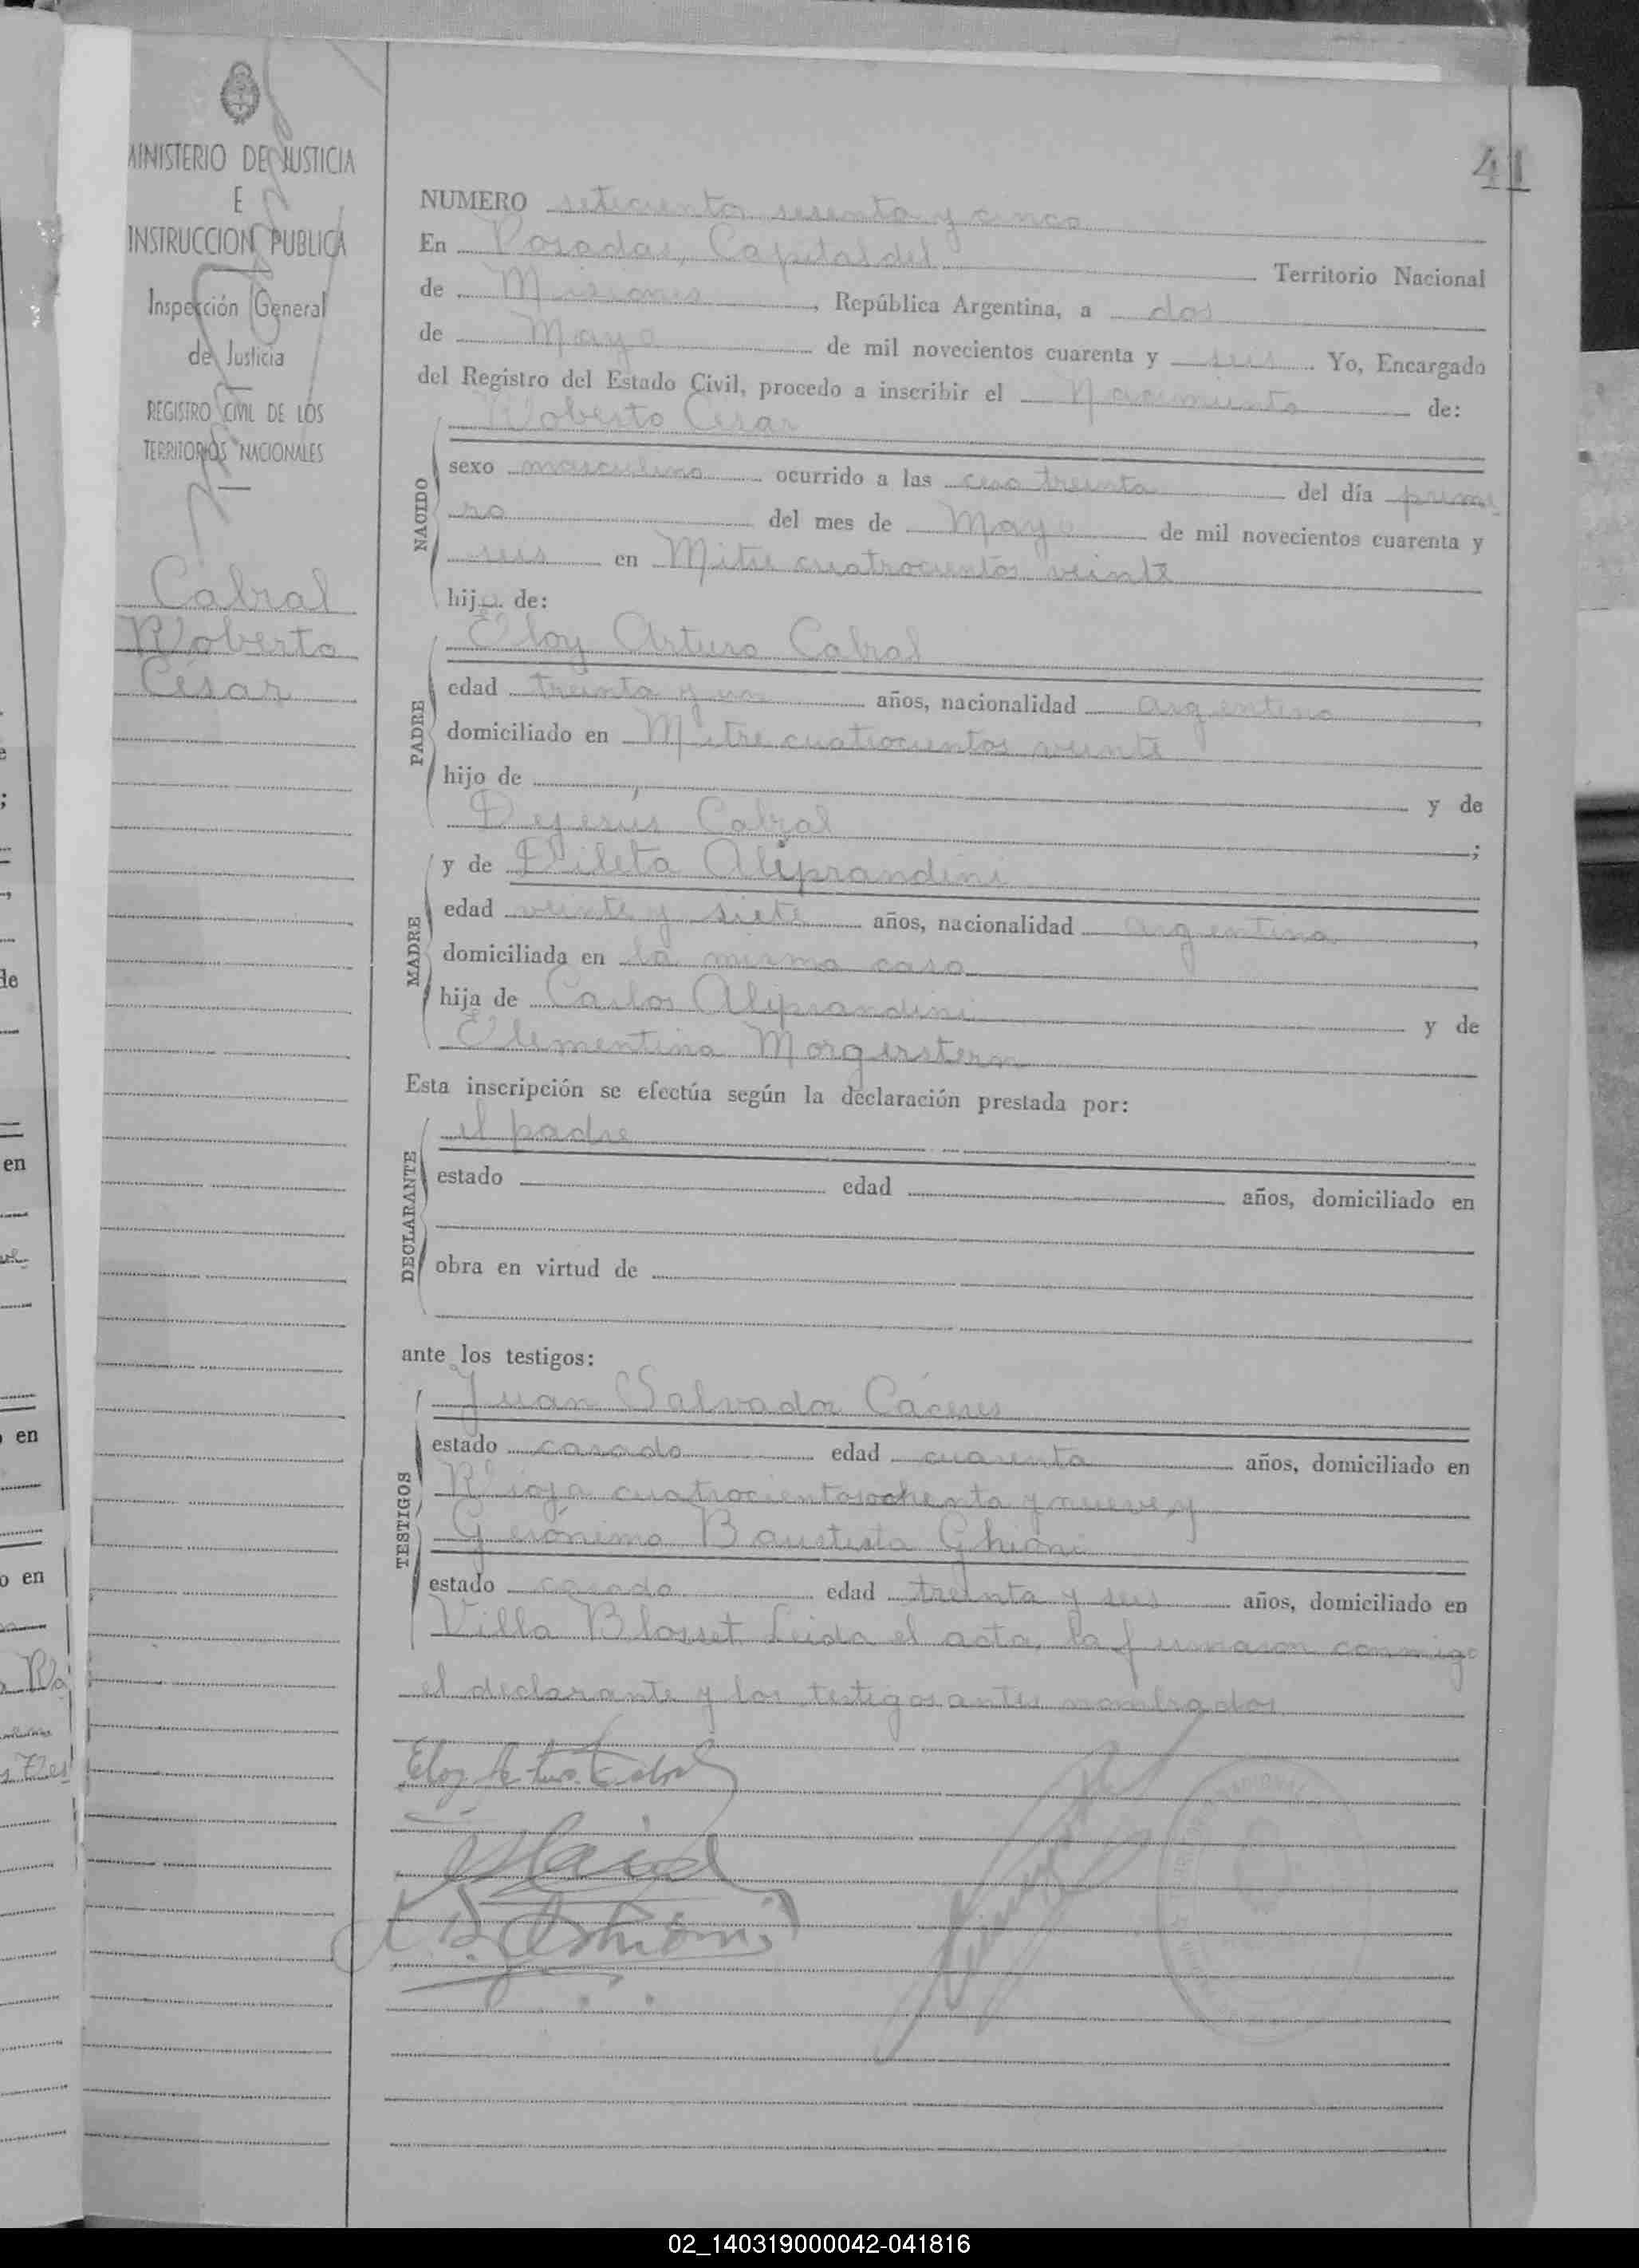 MINISTERIO DE JUSTICIA
E
INSTRUCCION PUBLICA
Inspección General
de Justicia
REGISTRO CIVIL DE LOS
TERRITORIOS NACIONALES
Cabral
Roberto
César
41
NUMERO setecientos sesenta y cinco
En Posadas, Capital del Territorio Nacional
de Misiones, República Argentina, a dos
de Mayo de mil novecientos cuarenta y seis Yo, Encargado
del Registro del Estado Civil, procedo a inscribir el Nacimiento de:
Roberto Cesar
NACIDO
sexo masculino ocurrido a las cero treinta del día prime
ro del mes de Mayo de mil novecientos cuarenta y
seis en Mitre cuatrocientos veinte
hijo de:
Eloy Arturo Cabral
PADRE
edad treinta y un años, nacionalidad argentina,
domiciliado en Mitre cuatrocientos veinte
hijo de y de
Dejesús Cabral;
MADRE
y de Dileta Aliprandini
edad veinte y siete años, nacionalidad argentina,
domiciliada en la misma casa
hija de Carlos Aliprandini y de
Clementina Morgerstern
Esta inscripción se efectúa según la declaración prestada por:
DECLARANTE
el padre
estado edad años, domiciliado en
obra en virtud de
ante los testigos:
TESTIGOS
Juan Salvador Cáceres
estado casado edad cuarenta años, domiciliado en
Rioja cuatrocientos ochenta y nueve, y
Gerónimo Bautista Ghioni
estado casado edad treinta y seis años, domiciliado en
Villa Blosset Leida el acta, la firmaron conmigo
el declarante y los testigos antes nombrados
Eloy Arturo Cabral
en
en
o en
02_140319000042-041816